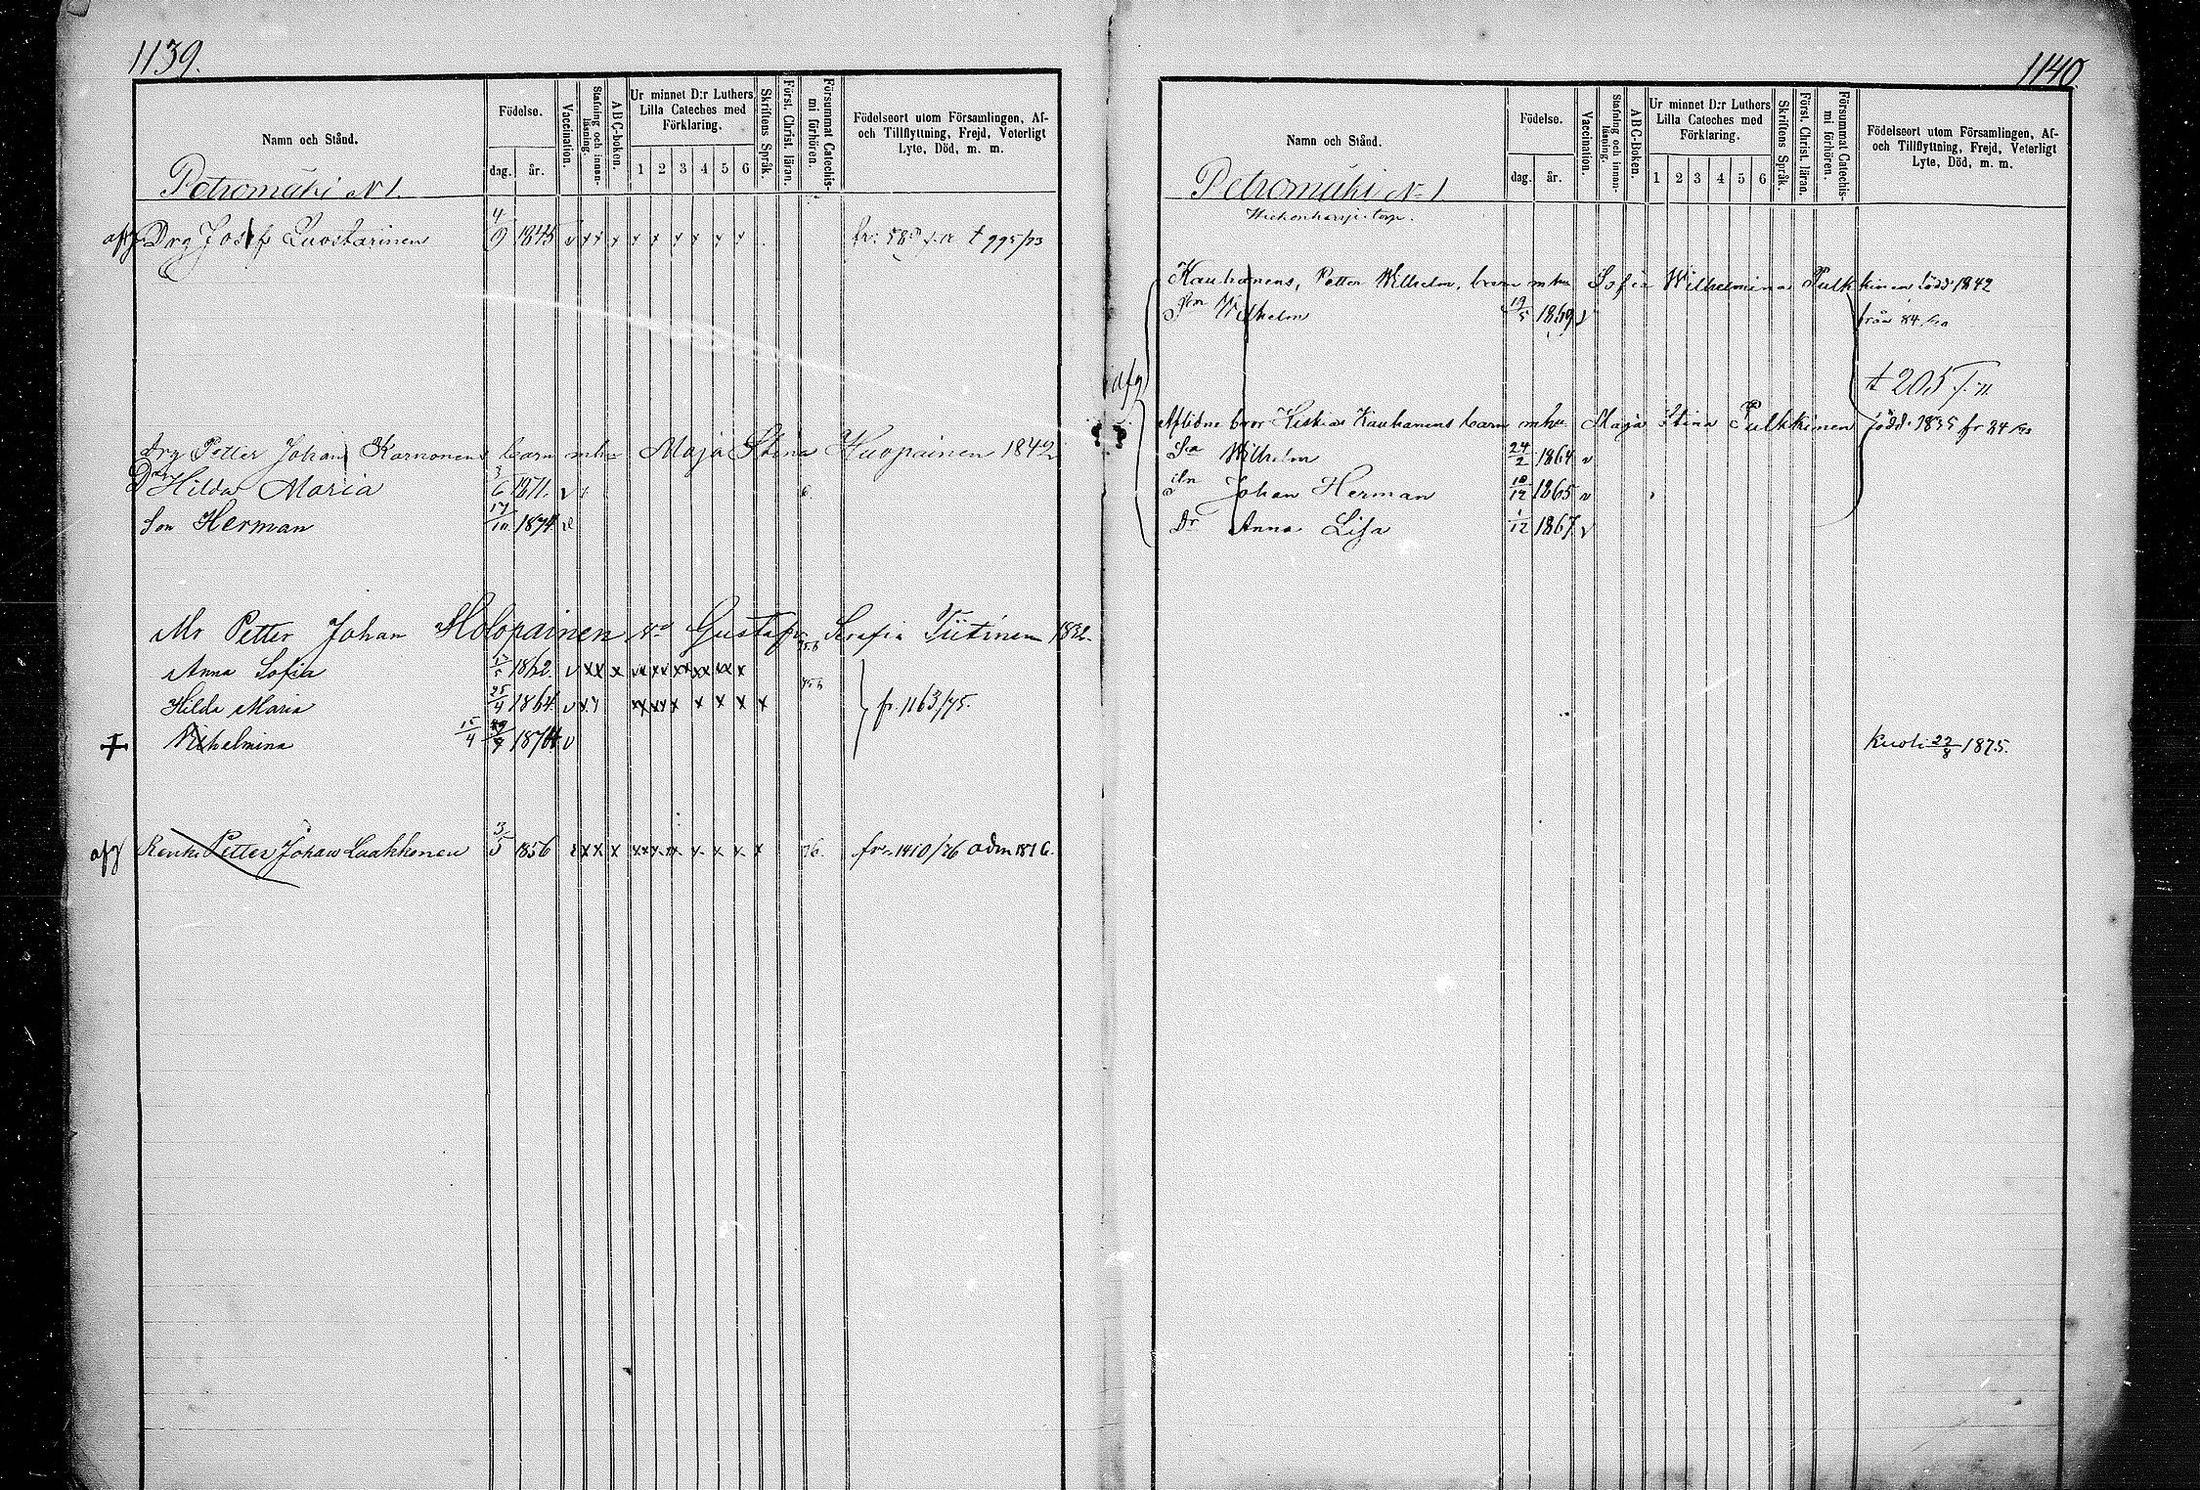 1139.
Namn och Stånd.
Födelse.
dag. år.
Vaccination.
Stafning och innan-läsning.
ABC-boken.
Ur minnet D:r Luthers Lilla Cateches med Förklaring.
1 2 3 4 5 6
Skriftens Språk.
Först. Christ. läran.
Försummat Catechis-mi förhören.
Födelseort utom Församlingen, Af- och Tillflyttning, Frejd, Veterligt Lyte, Död, m. m.
Petromäki N 1.
afg Drg Josef Luostarinen 4/9 1845 v x x x x x x x x x
Drg Petter Johan Karnonens barn mhu Maja Stina Kuopainen 1842
Dr Hilda Maria 3/6 1871. v
Son Herman 17/10 1874 v
Mr Petter Johan Holopainen Gustafva Serafia Tiitinen 1832.
Anna Sofia 1862. v x x x
Hilda Maria 25/4 1864 v fr. 1163/75.
+ Vilhelmina 15/4 1874 v
afg Renki Petter Johan Laakkonen 3/5 1856 76. fr. 1410/76 adm 1876.
1140
Namn och Stånd.
Födelse.
dag. år.
Vaccination.
Stafning och innan-läsning.
ABC-boken.
Ur minnet D:r Luthers Lilla Cateches med Förklaring.
1 2 3 4 5 6
Skriftens Språk.
Först. Christ. läran.
Försummat Catechis-mi förhören.
Födelseort utom Församlingen, Af- och Tillflyttning, Frejd, Veterligt Lyte, Död, m. m.
Petromäki N 1.
Kauhanens, Petter Wilhelm, barn mhu Sofia Wilhelmina Pulkkinen född 1842
Son Vilhelm 19/5 1869 v från 84
afg
t 205
Aflidne bror Kauhanens barn mhu Maja Stina Pulkkinen född 1835 fr 84
Son Wilhelm 24/2 1864 v
Johan Herman 10/12 1865 v
Dr Anna Lisa 1/12 1867 v
Kuoli 22/8 1875.